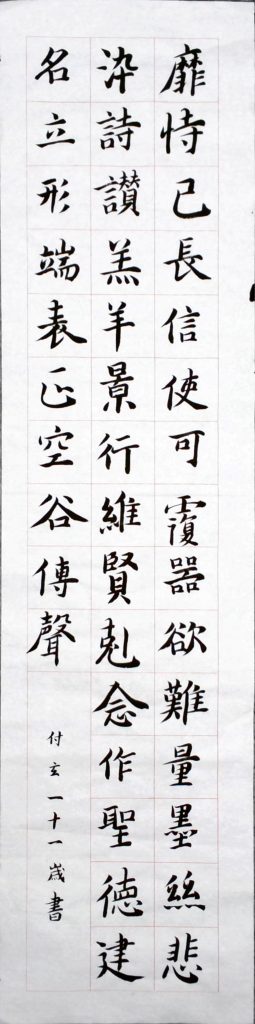 靡恃己長信使可覆器欲難量墨絲悲
染詩讚羔羊景行維賢剋念作聖德建
名立形端表正空谷傳聲
付玄一十一歲書